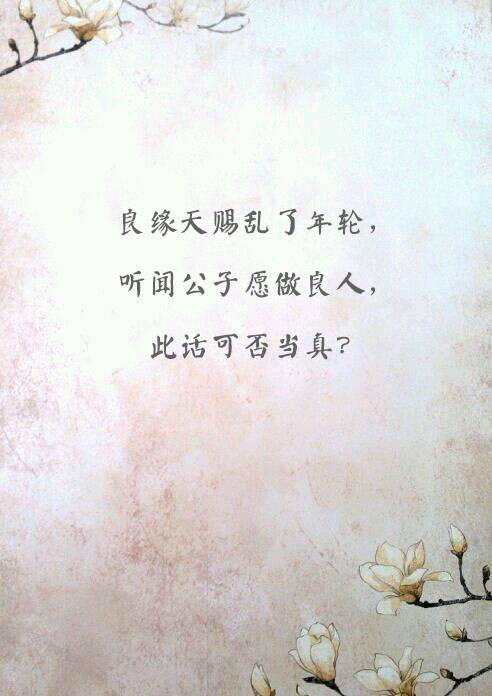 良缘天赐乱了年轮，
听闻公子愿做良人，
此话可否当真?